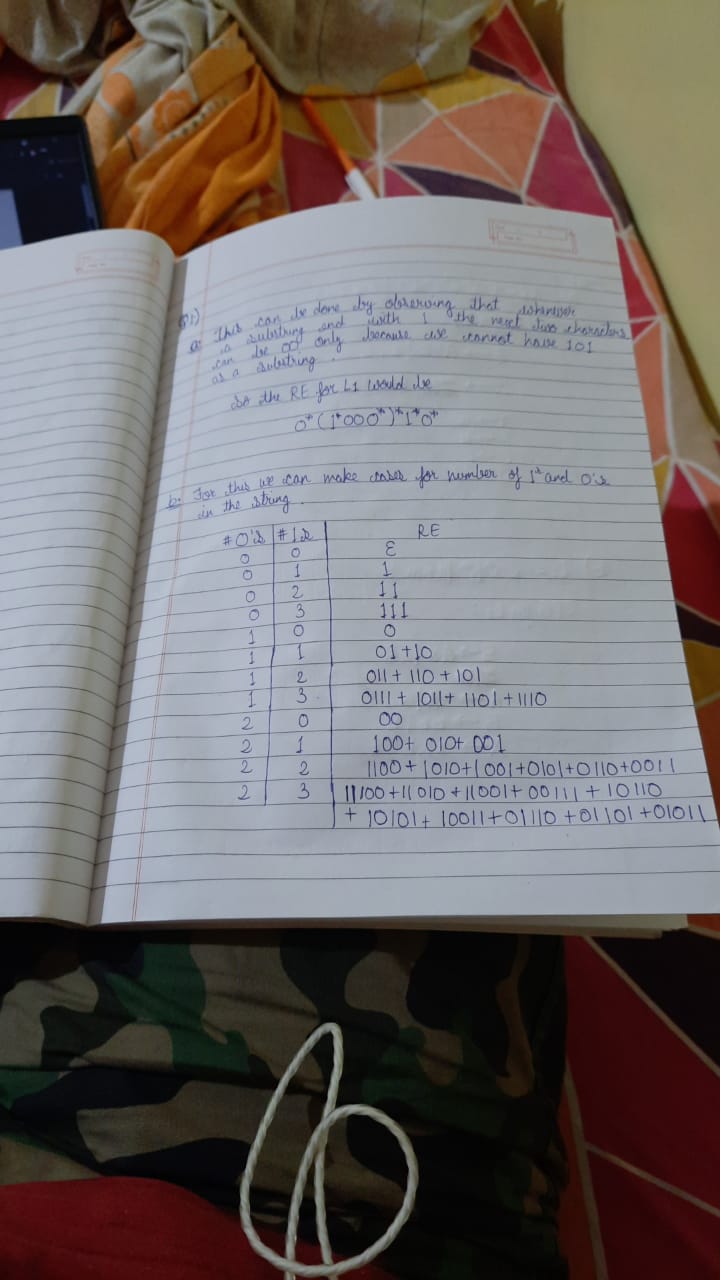 Q1)
a. This can be done by observing that whenever
a substring end with 1 the next two characters
can be 00 only because we cannot have 101
as a substring.
So the RE for L1 would be
0*(1*000*)*1*0*
b. For this we can make cases for number of 1's and 0's
in the string.
#0's #1s RE
0 0 ε
0 1 1
0 2 11
0 3 111
1 0 0
1 1 01+10
1 2 011+110+101
1 3 0111+1011+1101+1110
2 0 00
2 1 100+010+001
2 2 1100+1010+1001+0101+0110+0011
2 3 11100+11010+11001+00111+10110
+10101+10011+01110+01101+01011